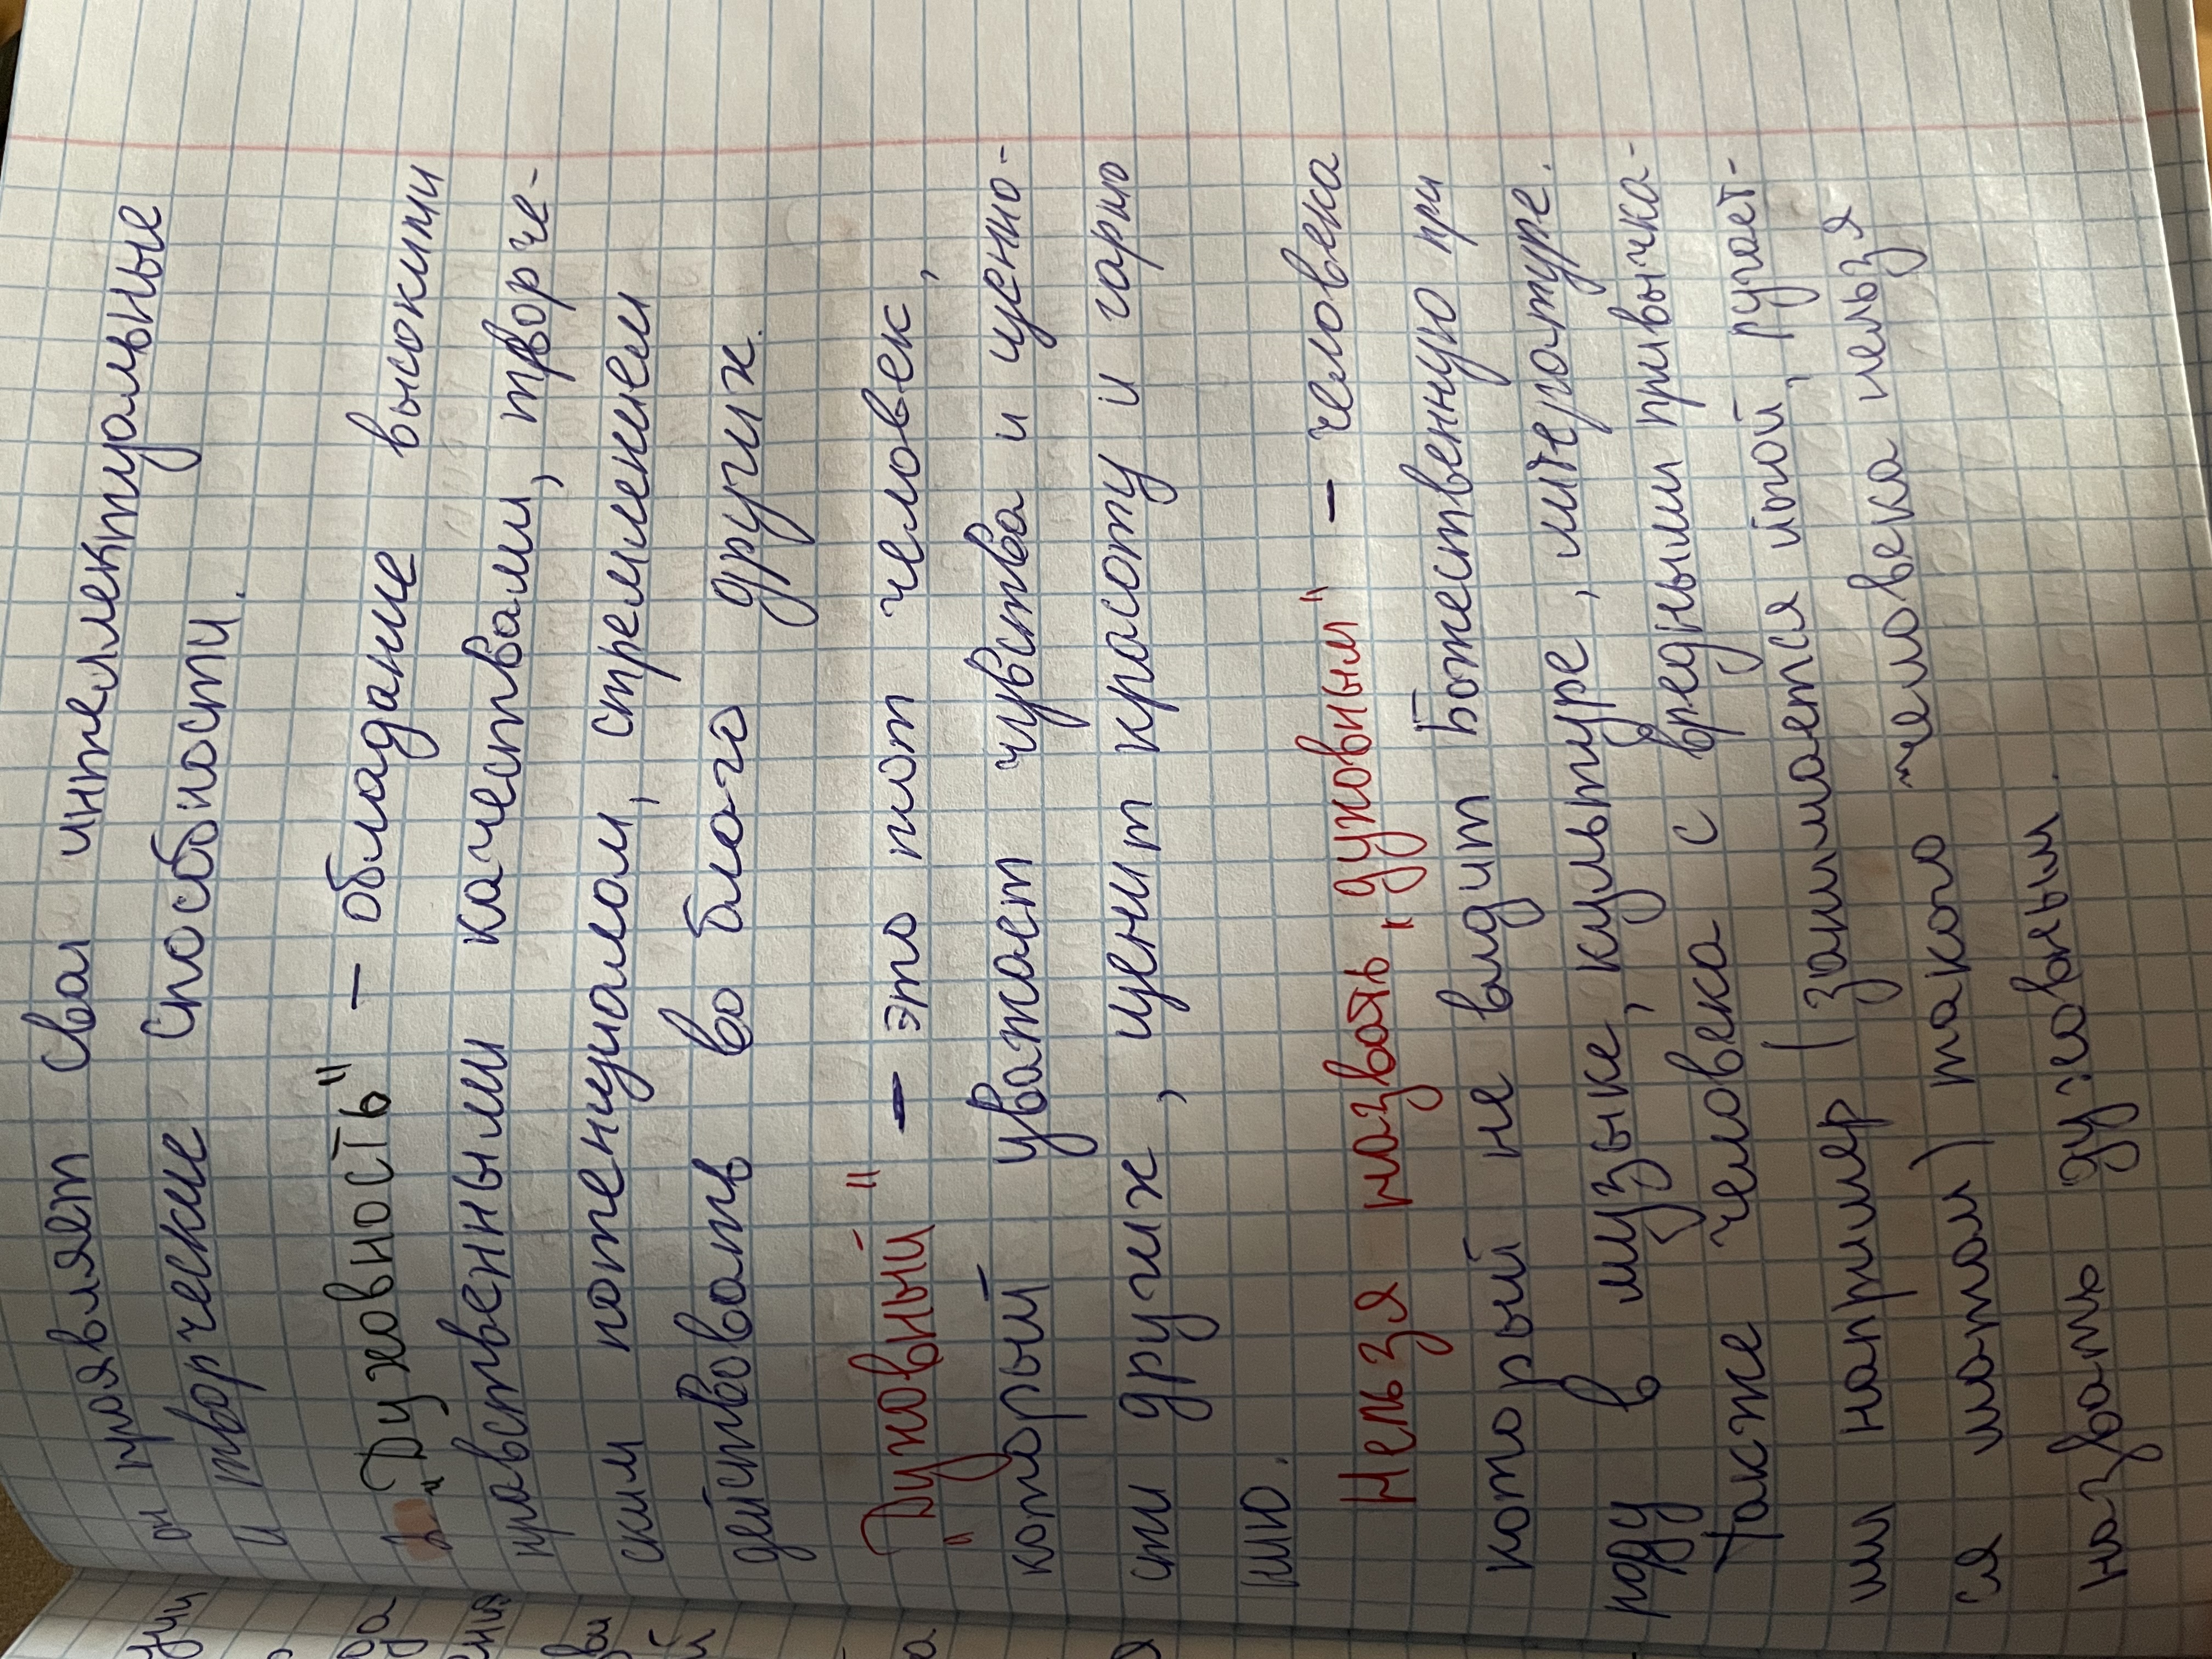 он проявляет свои интеллектуальные
и творческие способности.
2. „Духовность" – обладание высокими
нравственными качествами, творче-
ским потенциалом, стремлением
действовать во благо других.
"Духовный" – это тот человек,
который уважает чувства и ценно-
сти других, ценит красоту и гармо
нию.
Нельзя назвать „духовным" – человека
который не видит Божественную при
роду в музыке, культуре, литературе.
Также человека с вредными привычка-
ми например (занимается йогой, ругает-
ся матом) такого человека нельзя
назвать духовным.